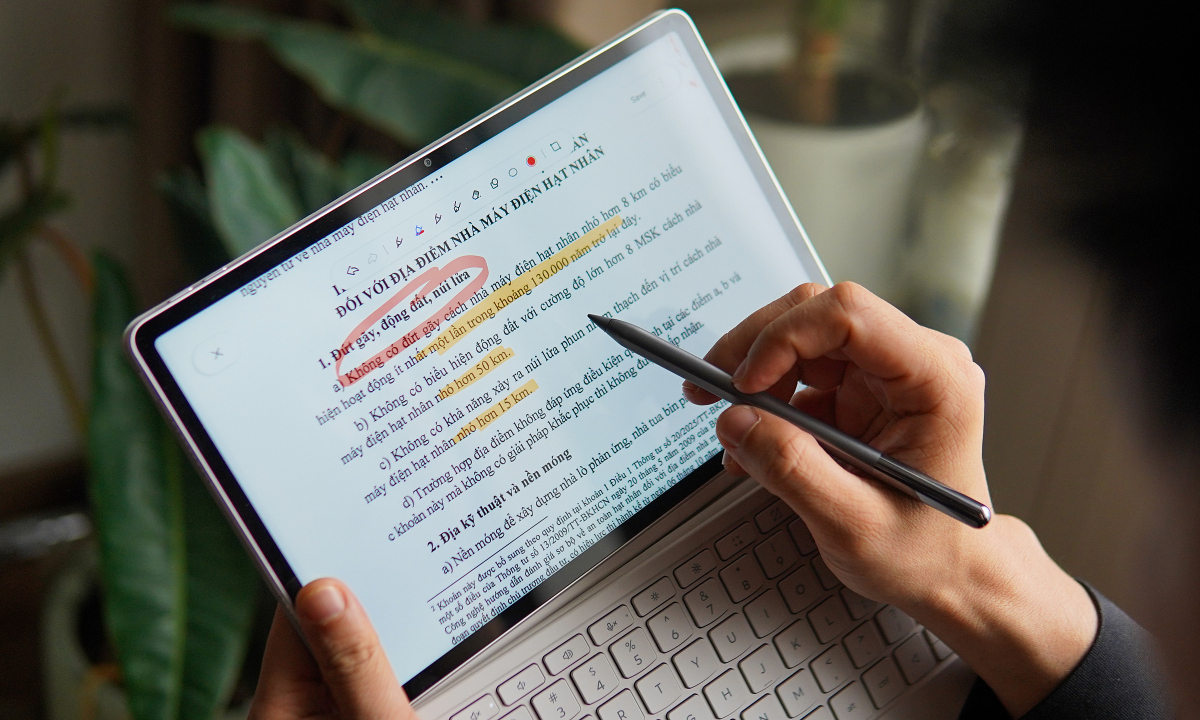 Save
nguyên tử về nhà máy điện hạt nhân. ...
I.
ĐỐI VỚI ĐỊA ĐIỂM NHÀ MÁY ĐIỆN HẠT NHÂN
1. Đứt gãy, động đất, núi lửa
a) Không có đứt gãy cách nhà máy điện hạt nhân nhỏ hơn 8 km có biểu
hiện hoạt động ít nhất một lần trong khoảng 130.000 năm trở lại đây.
b) Không có biểu hiện động đất với cường độ lớn hơn 8 MSK cách nhà
máy điện hạt nhân nhỏ hơn 50 km.
c) Không có khả năng xảy ra núi lửa phun nham thạch đến vị trí cách nhà
máy điện hạt nhân nhỏ hơn 15 km.
d) Trường hợp địa điểm không đáp ứng điều kiện tại các điểm a, b và
c khoản này mà không có giải pháp khắc phục thì không nhận.
2. Địa kỹ thuật và nền móng
a) Nền móng để xây dựng nhà lò phản ứng, nhà tua bin
2 Khoản này được bổ sung theo quy định tại khoản 1 Điều 1 Thông tư số 20/2025/TT-BKHCN
một số điều của Thông tư số 13/2009/TT-BKHCN ngày 20 tháng 5 năm 2009 của
Công nghệ hướng dẫn đánh giá sơ bộ về an toàn hạt nhân đối với địa điểm nhà
đoạn quyết định chủ trương đầu tư, có hiệu lực thi hành kể từ ngày 06 tháng 10 năm
# 3
$ 4
% 5
^ 6
& 7
* 8
( 9
R
T
Y
U
I
O
G
H
J
K
L
N
M